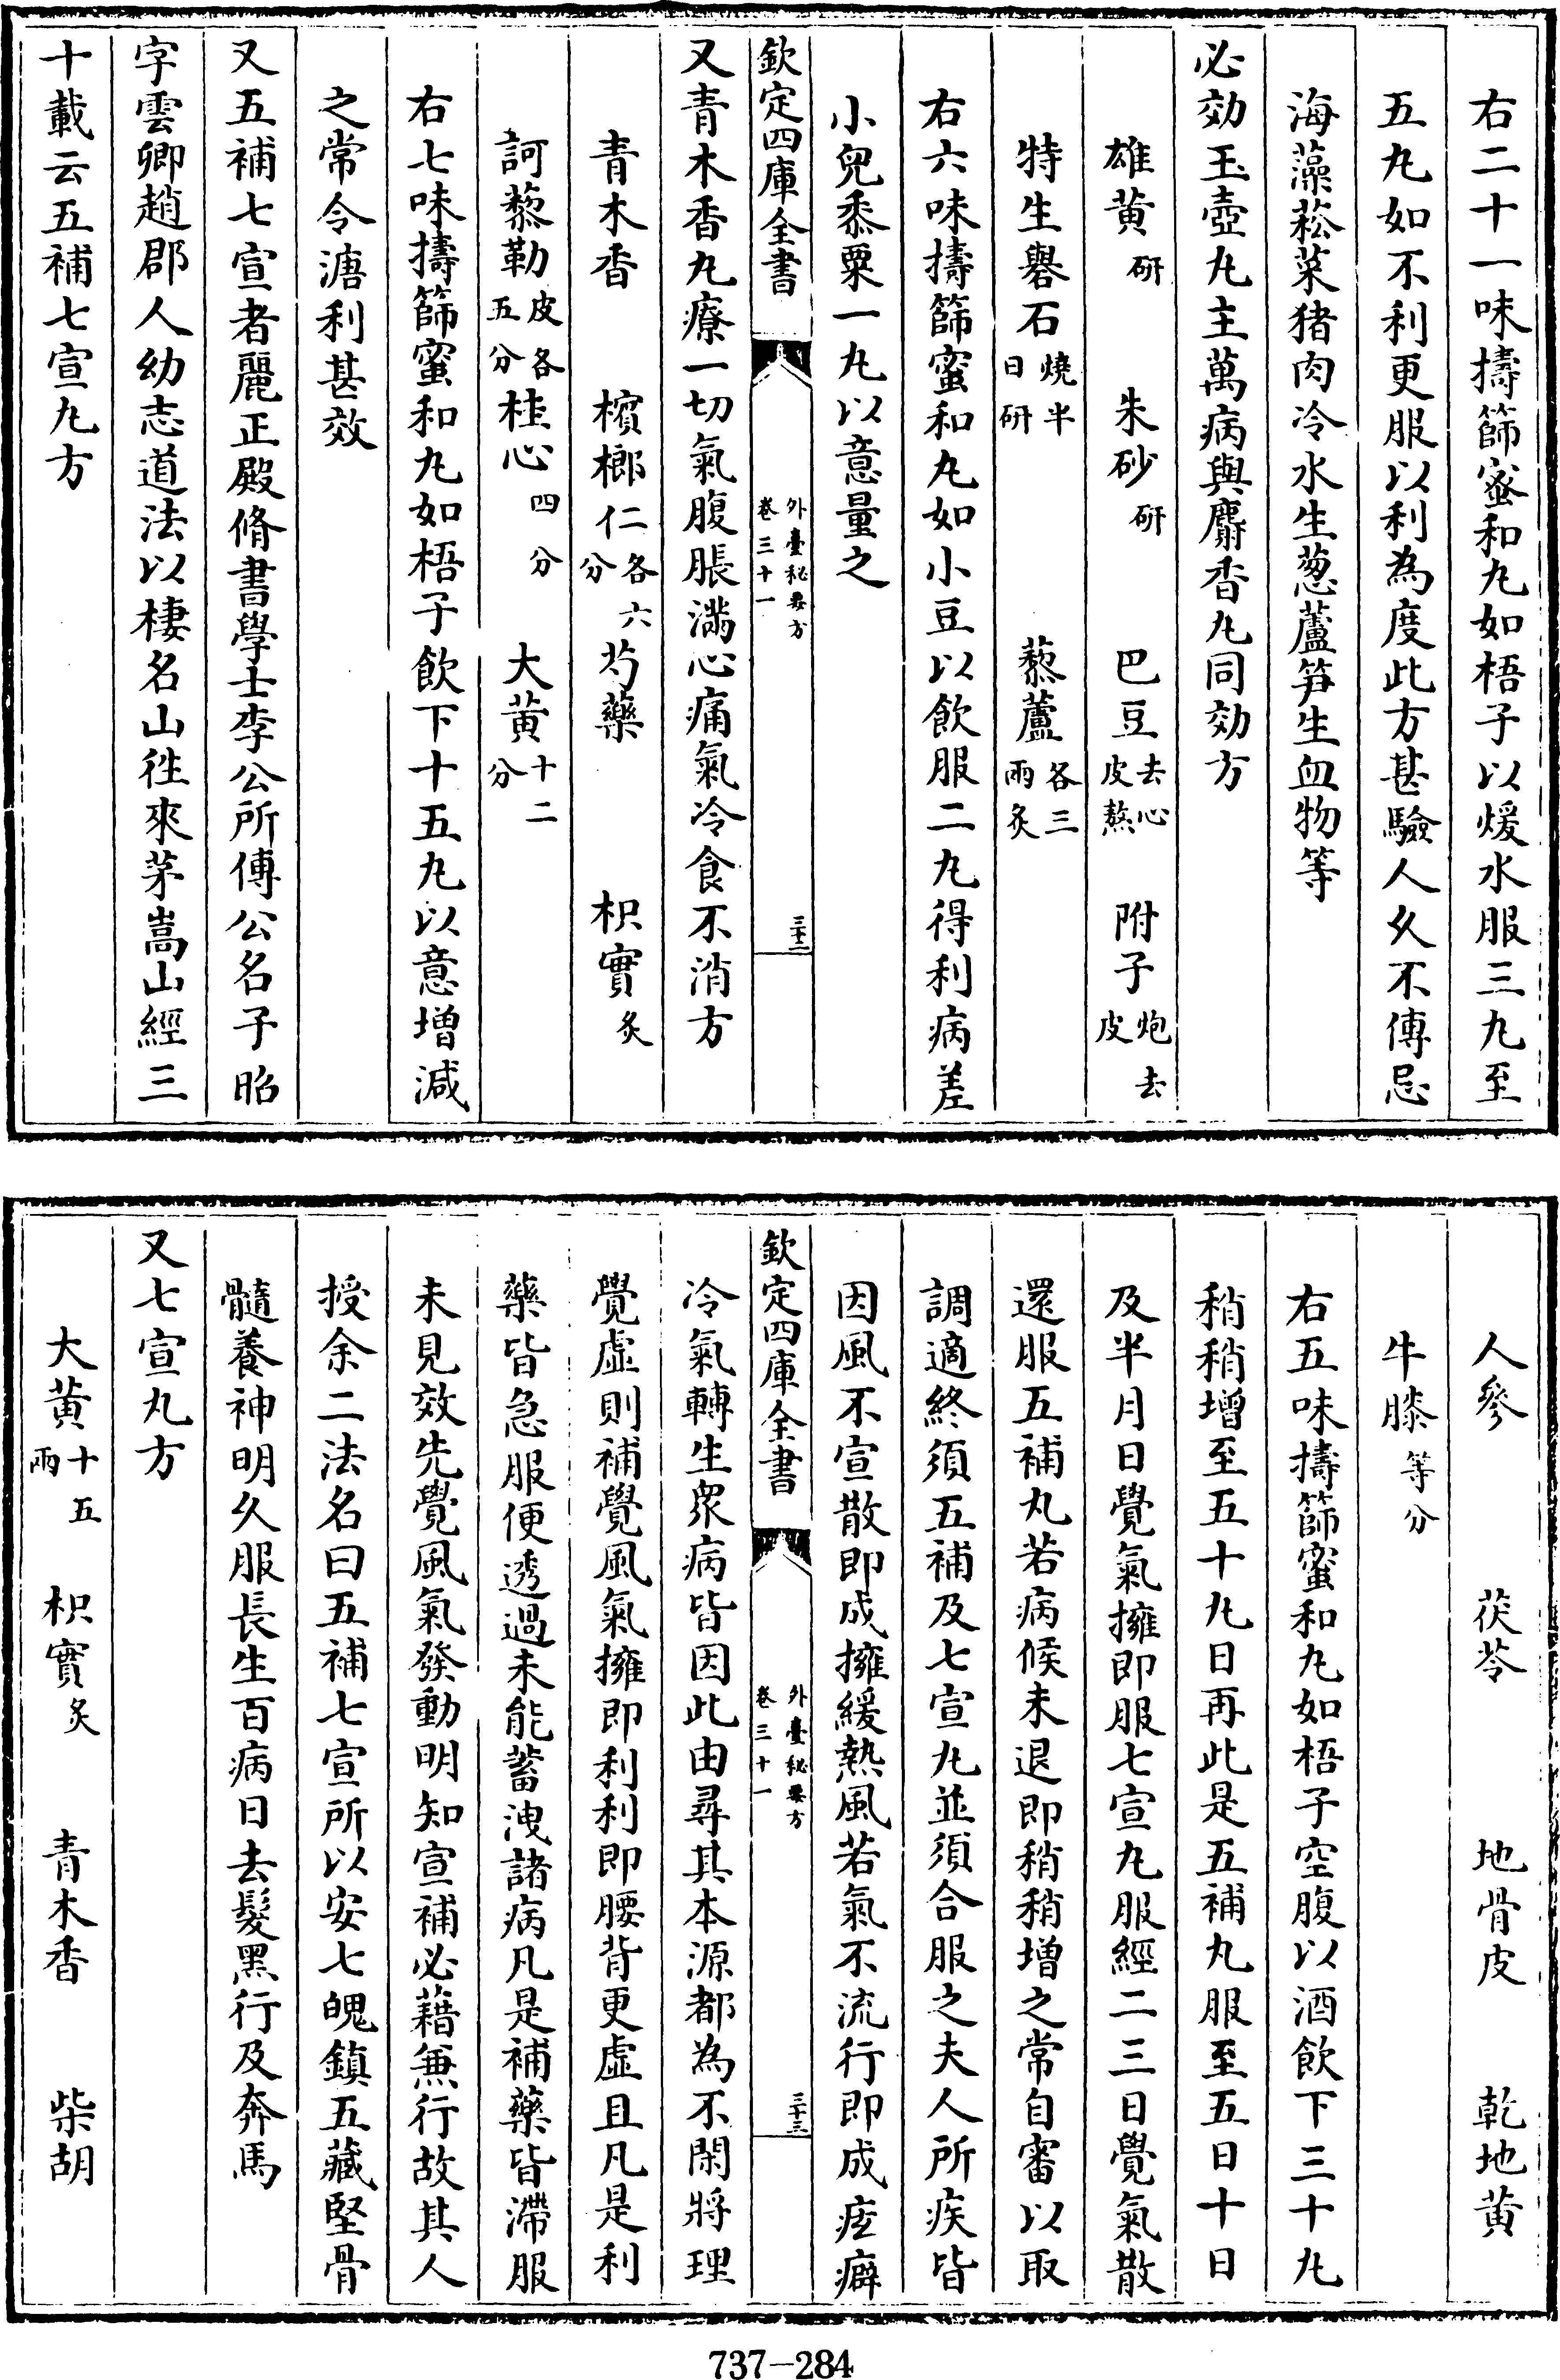 右二十一味擣篩蜜和丸如梧子以煖水服三丸至
五丸如不利更服以利為度此方甚驗人久不傳忌
海藻菘菜猪肉冷水生葱蘆笋生血物等
必効玉壺丸主萬病與麝香丸同効方
雄黄研 朱砂研 巴豆去心皮熬 附子炮去皮
特生礜石燒半日研 藜蘆各三兩炙
右六味擣篩蜜和丸如小豆以飲服二丸得利病差
小兒黍粟一丸以意量之
欽定四庫全書 外臺秘要方卷三十一 三十二
又青木香丸療一切氣腹脹滿心痛氣冷食不消方
青木香 檳榔仁各六分 芍藥 枳實炙
訶藜勒皮各五分 桂心四分 大黄十二分
右七味擣篩蜜和丸如梧子飲下十五丸以意增減
之常令溏利甚效
又五補七宣者麗正殿脩書學士李公所傳公名子昭
字雲卿趙郡人幼志道法以棲名山徃來茅嵩山經三
十載云五補七宣丸方
人參 茯苓 地骨皮 乾地黄
牛膝等分
右五味擣篩蜜和丸如梧子空腹以酒飲下三十丸
稍稍增至五十丸日再此是五補丸服至五日十日
及半月日覺氣擁即服七宣丸服經二三日覺氣散
還服五補丸若病候未退即稍稍增之常自審以取
調適終須五補及七宣丸並須合服之夫人所疾皆
因風不宣散即成擁緩熱風若氣不流行即成痃癖
欽定四庫全書 外臺秘要方卷三十一 三十三
冷氣轉生衆病皆因此由尋其本源都為不閑將理
覺虚則補覺風氣擁即利利即腰背更虚且凡是利
藥皆急服便透過未能蓄洩諸病凡是補藥皆滯服
未見效先覺風氣發動明知宣補必藉兼行故其人
授余二法名曰五補七宣所以安七魄鎮五藏堅骨
髓養神明久服長生百病日去髮黑行及奔馬
又七宣丸方
大黄十五兩 枳實炙 青木香 柴胡
737-284